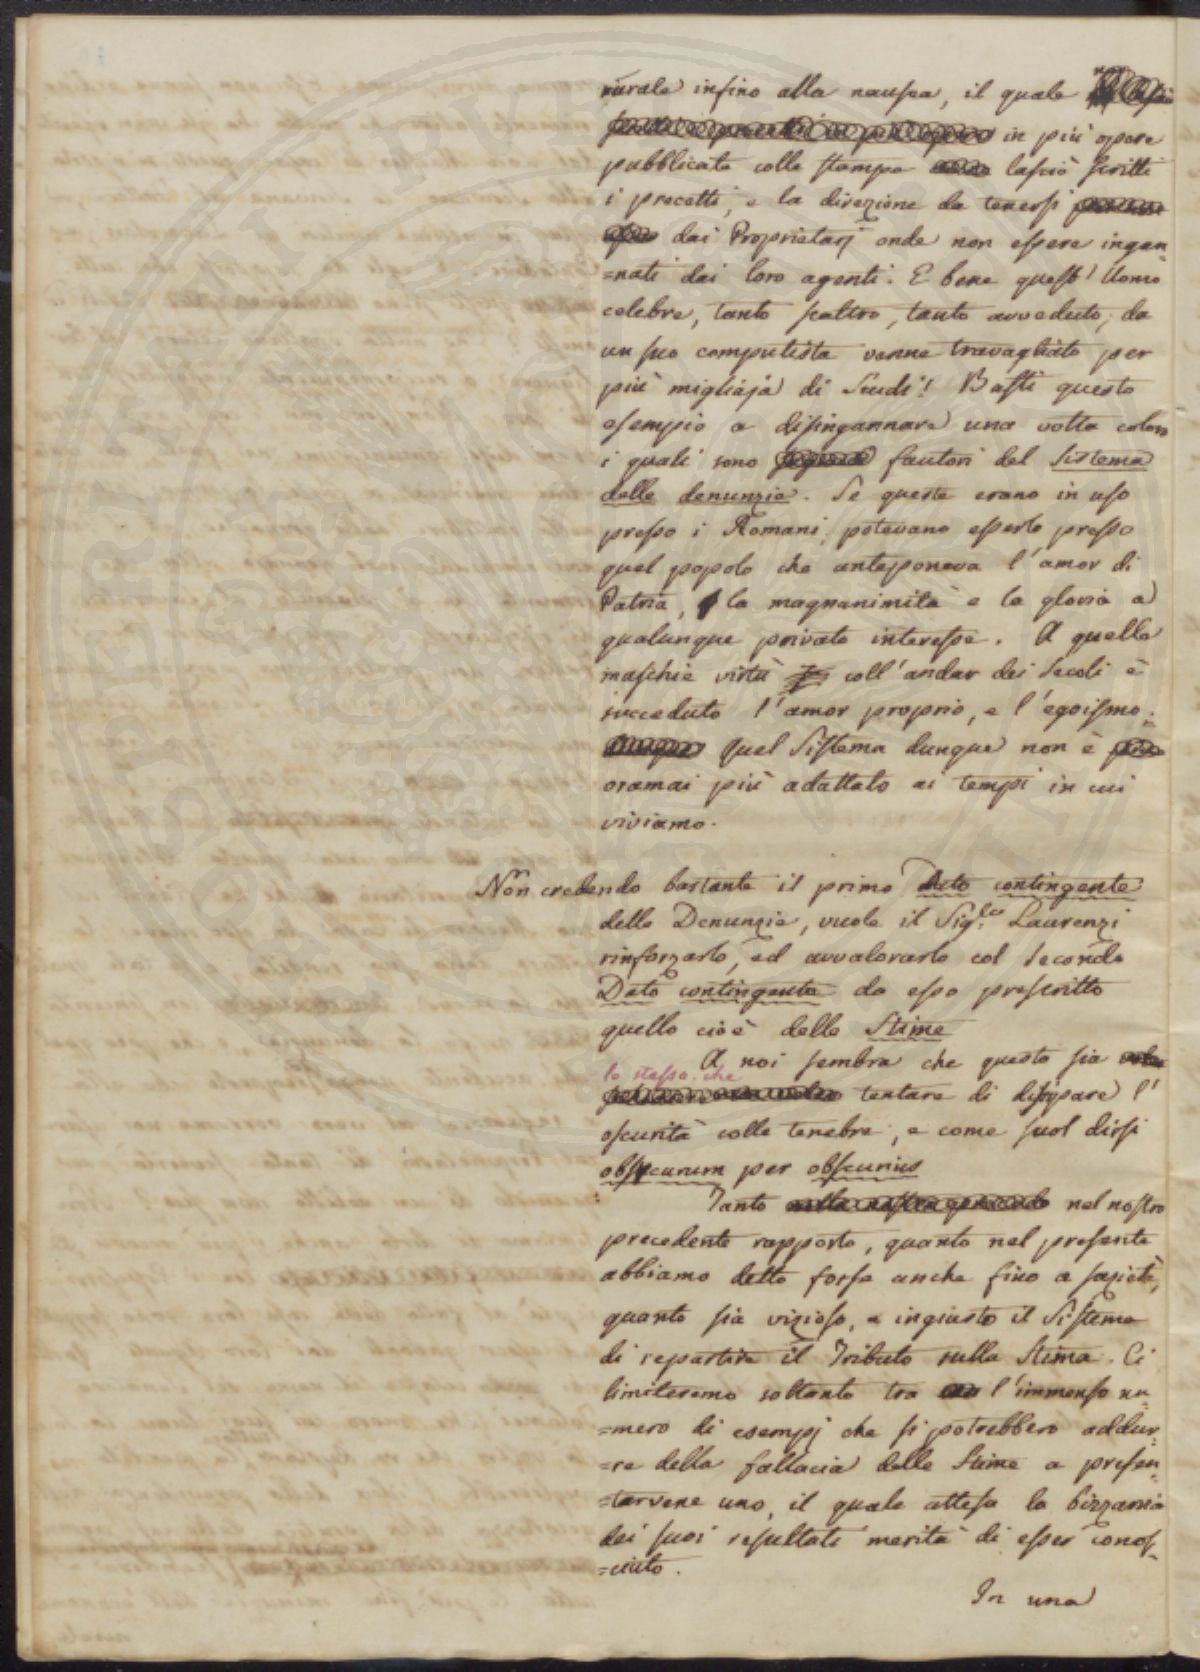 rurale infino alla nausea, il quale
in più opere
pubblicate colle stampe lasciò scritti
i precetti, e la direzione da tenersi
dai Proprietarj onde non essere ingan
=nati dai loro agenti. E bene quest' Uomo
celebre, tanto scaltro, tanto avveduto, da
un suo computista venne travagliato per
più migliaja di Scudi! Basti questo
esempio a disingannare una volta coloro
i quali sono fautori del Sistema
delle denunzie. Se queste erano in uso
presso i Romani, potevano esserlo presso
quel popolo che anteponeva l'amor di
Patria, la magnanimità e la gloria a
qualunque privato interesse. A quelle
maschie virtù coll'andar dei Secoli è
succeduto l'amor proprio, e l'egoismo.
Quel Sistema dunque non è
oramai più adattato ai tempi in cui
viviamo.
Non credendo bastante il primo Dato contingente
delle Denunzie, vuole il Sig.r Laurenzi
rinforzarlo, ed avvalorarlo col Secondo
Dato contingente da esso prescritto
quello cioè delle Stime
A noi sembra che questo sia
lo stesso che
tentare di dissipare l'
oscurità colle tenebre, e come suol dirsi
obscurum per obscurius
Tanto nel nostro
precedente rapporto, quanto nel presente
abbiamo detto forse anche fino a sazietà,
quanto sia vizioso, e ingiusto il Sistema
di repartire il Tributo sulla Stima. Ci
limiteremo soltanto tra l'immenso nu
=mero di esempj che si potrebbero addur
=re della fallacia delle Stime a presen
=tarvene uno, il quale attesa la bizzarria
dei suoi resultati merita di esser conos
=ciuto.
In una